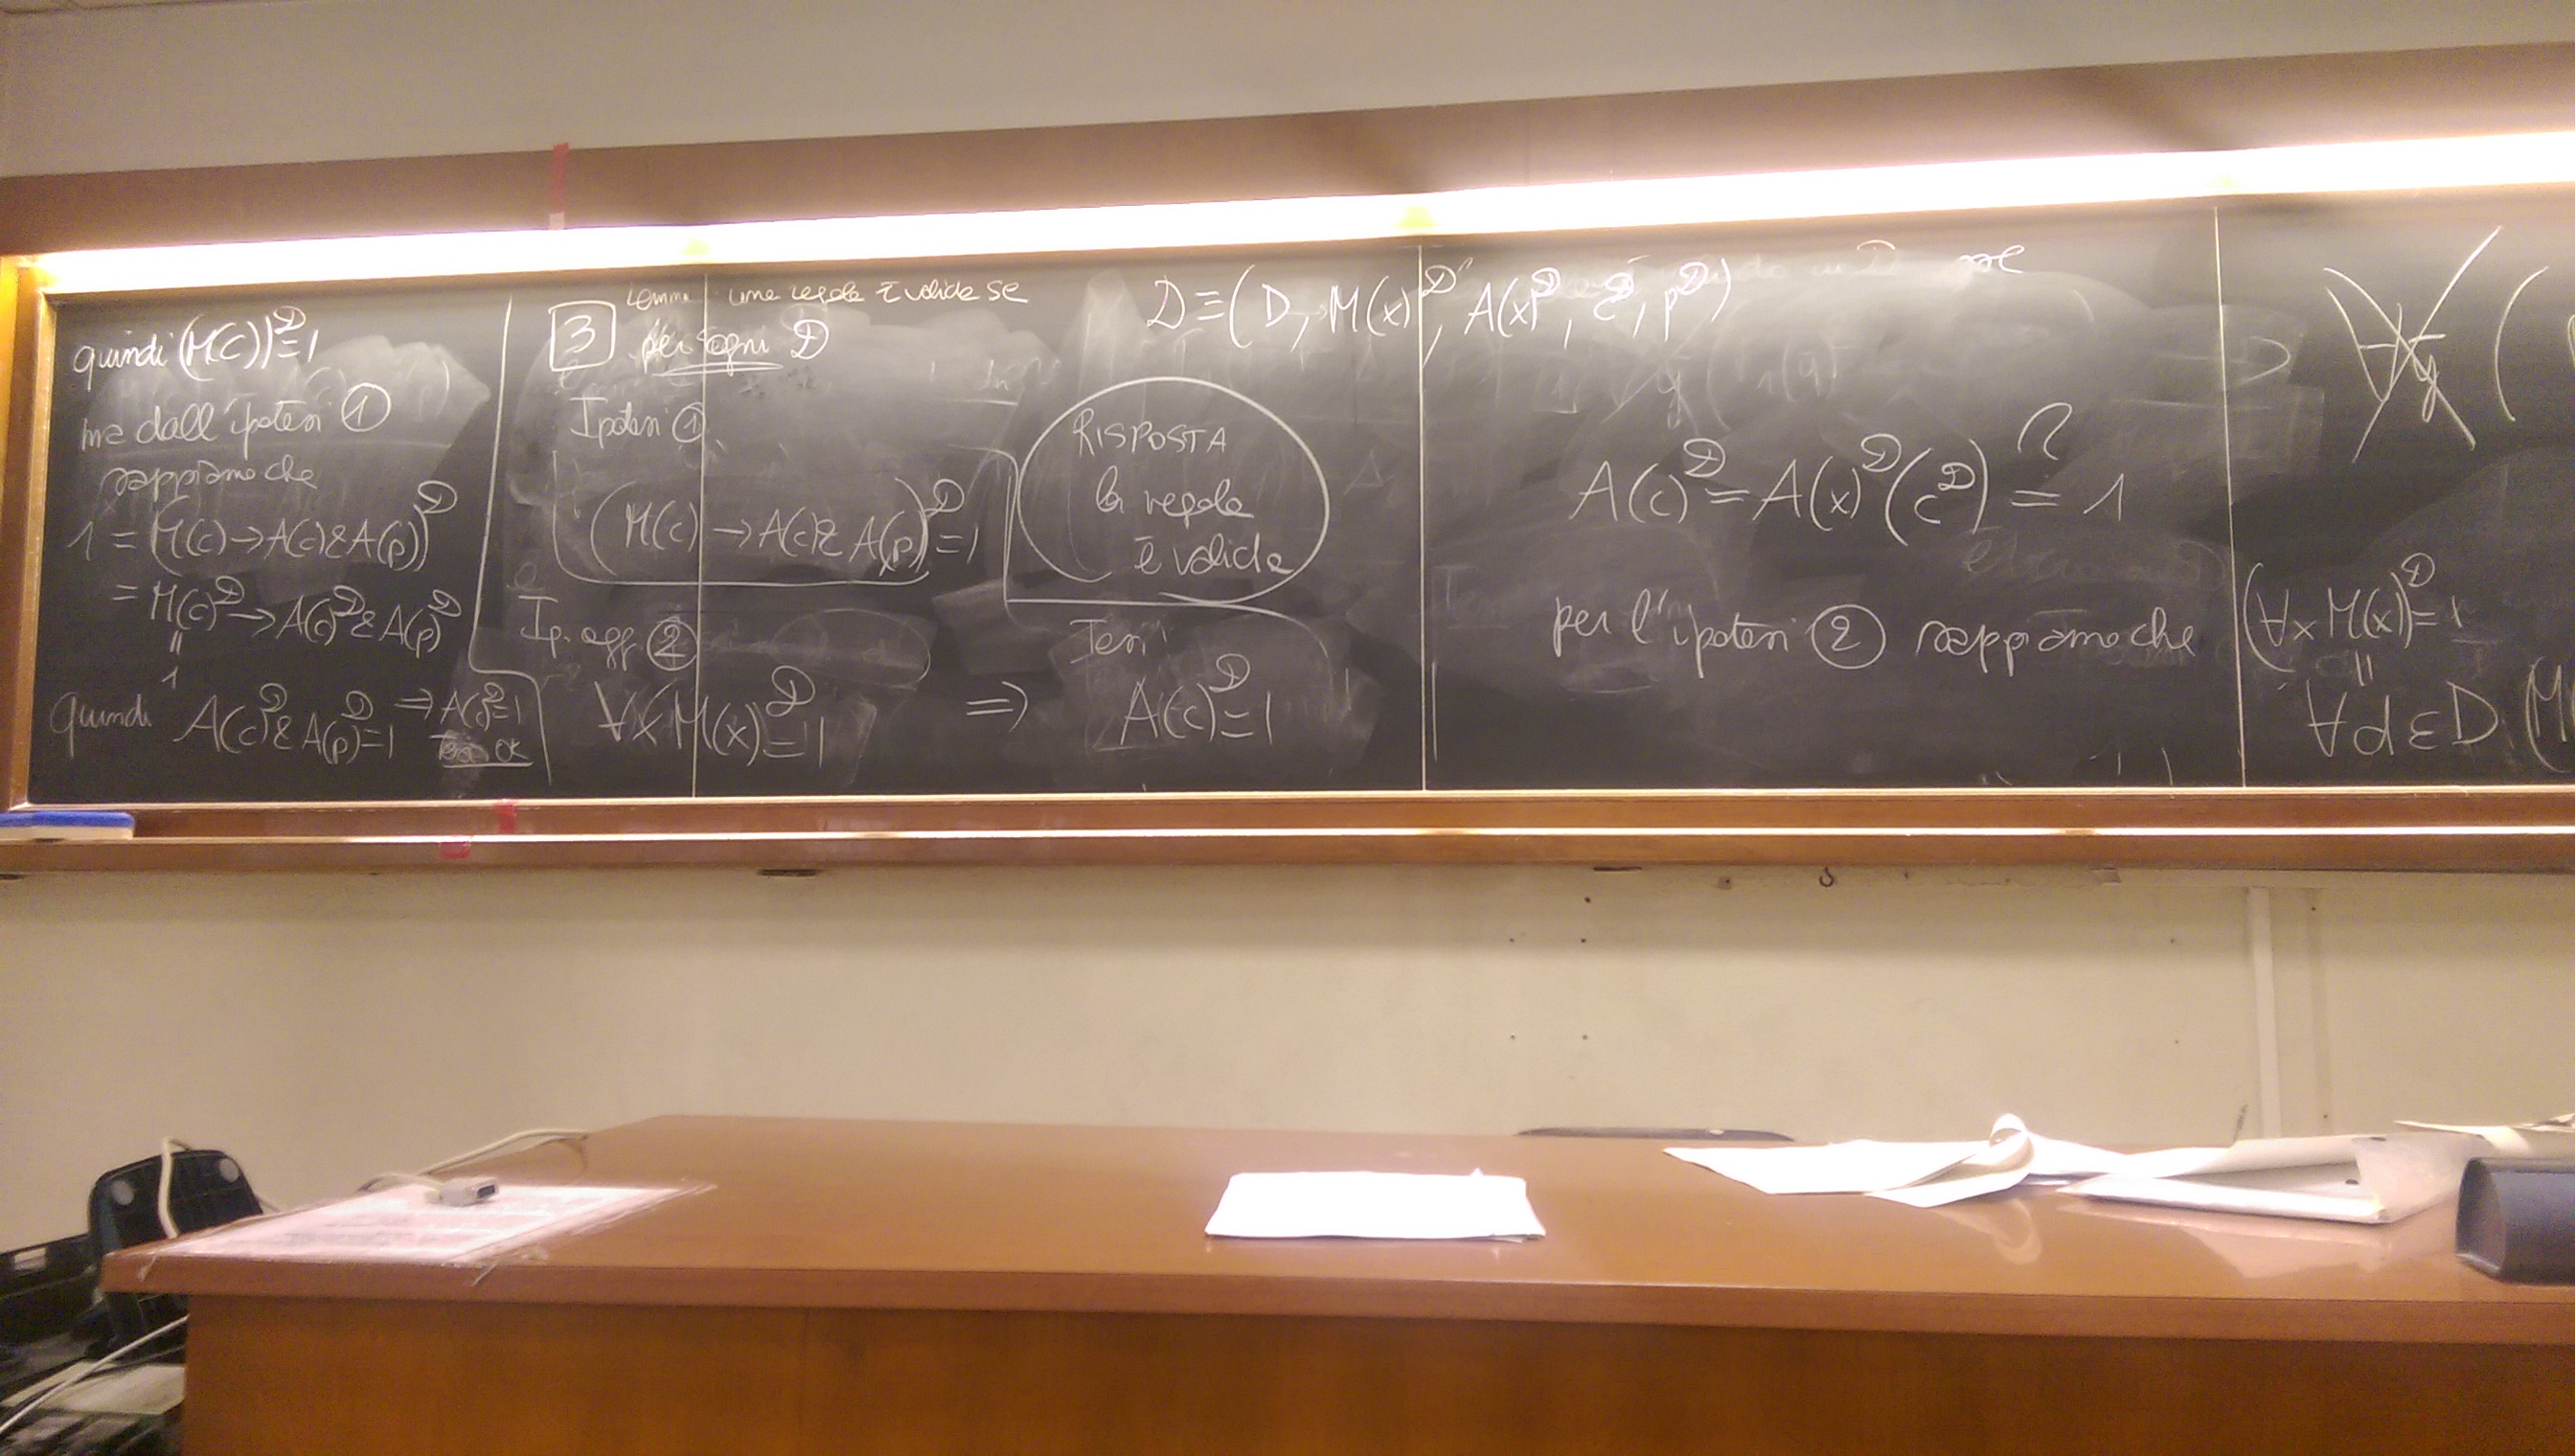 quindi (M(c))^D = 1
ma dall'ipotesi ①
sappiamo che
1 = (M(c) → A(c) & A(p))^D
= M(c)^D → A(c)^D & A(p)^D
||
1
quindi A(c)^D & A(p)^D = 1 ⇒ A(c)^D = 1
ok
3
una regola è valida se
per ogni D
Ipotesi ①
(M(c) → A(c) & A(p))^D = 1
Ip. agg ②
∀x M(x)^D = 1 ⇒
RISPOSTA
la regola
è valida
Tesi
A(c)^D = 1
D ≡ (D, M(x)^D, A(x)^D, c^D, p^D)
A(c)^D = A(x)^D (c^D) = 1
?
per l'ipotesi ② sappiamo che
(∀x M(x))^D = 1
||
∀d ε D